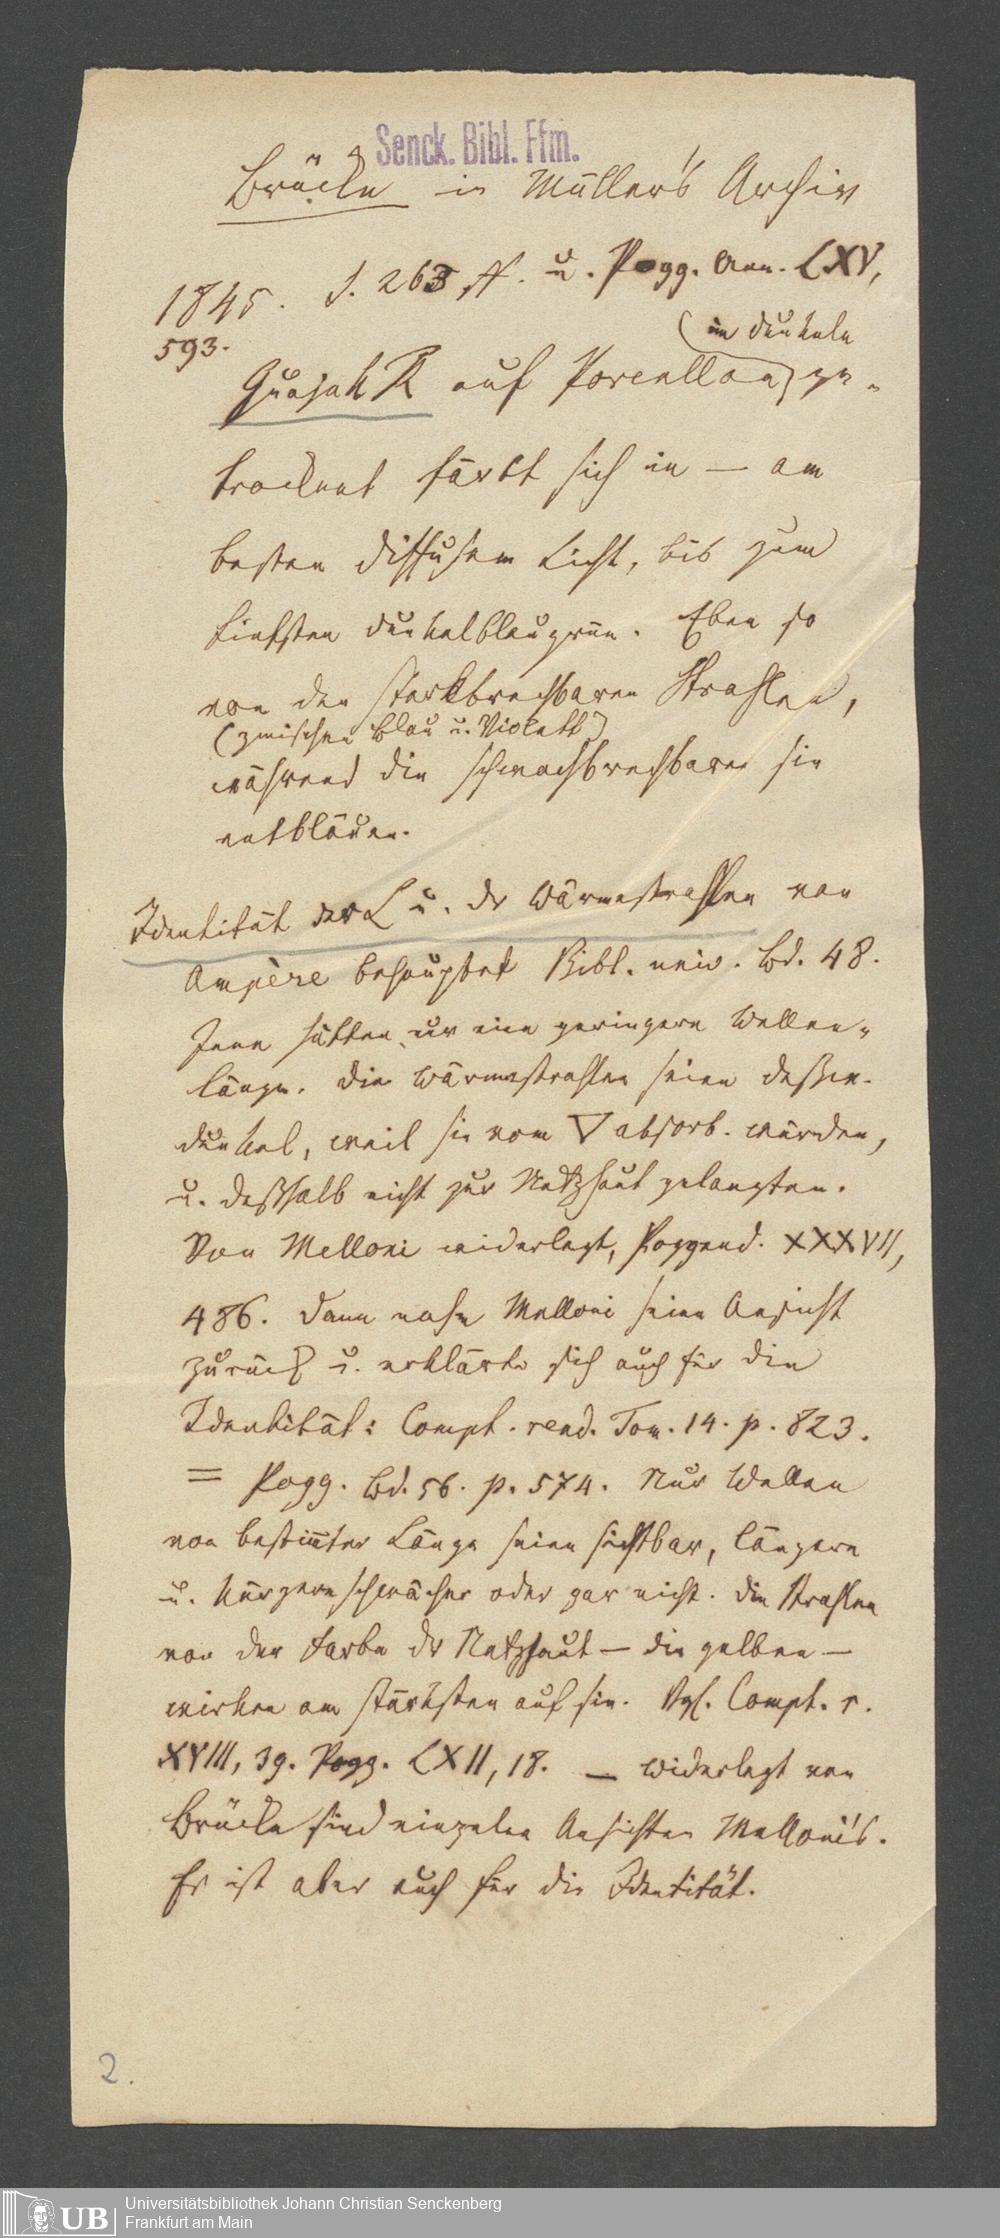 Senck. Bibl. Ffm.
Brücke in Müller's Archiv
1845. S. 263 ff. u. Pogg. Ann. LXV,
593.
(im Dunkeln
Guajak R auf Porcellan) ge-
trocknet färbt sich in — am
besten diffusem Licht, bis zum
tiefsten dunkelblaugrün. Eben so
von den starkbrechbaren Strahlen,
(zwischen Blau u. Violett)
während die schwachbrechbaren sie
entbläuen.
Identität der L u. der Wärmestrahlen von
Ampère behauptet Bibl. univ. Bd. 48.
Jene hätten nur eine geringere Wellen-
länge. Die Wärmestrahlen seien
dunkel, weil sie vom ▽ absorb. würden,
u. deßhalb nicht zur Netzhaut gelangten.
Von Melloni widerlegt, Poggend. XXXVII,
486. Dann nahm Melloni seine Ansicht
zurück u. erklärte sich auch für die
Identität: Compt. rend. Tom. 14. p. 823.
= Pogg. Bd. 56. p. 574. Nur Wellen
von bestim̅ter Länge seien sichtbar, längere
u. kürzere schwächer oder gar nicht. Die Strahlen
von der Farbe der Netzhaut — die gelben —
wirken am stärksten auf sie. Vgl. Compt. r.
XVIII, 39. Pogg. LXII, 18. — Widerlegt von
Brücke sind einzelne Ansichten Melloni's.
Er ist aber auch für die Identität.
2.
UB
Universitätsbibliothek Johann Christian Senckenberg
Frankfurt am Main